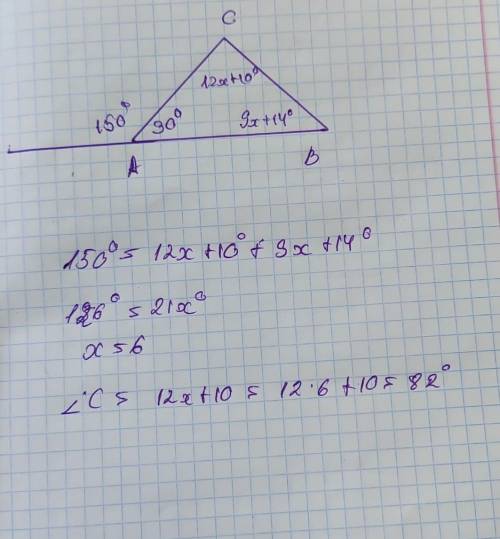 C
12x+10°
150°
30°
9x+14°
A
B
150° = 12x+10° + 9x+14°
126° = 21x°
x = 6
∠C = 12x+10 = 12·6+10 = 82°